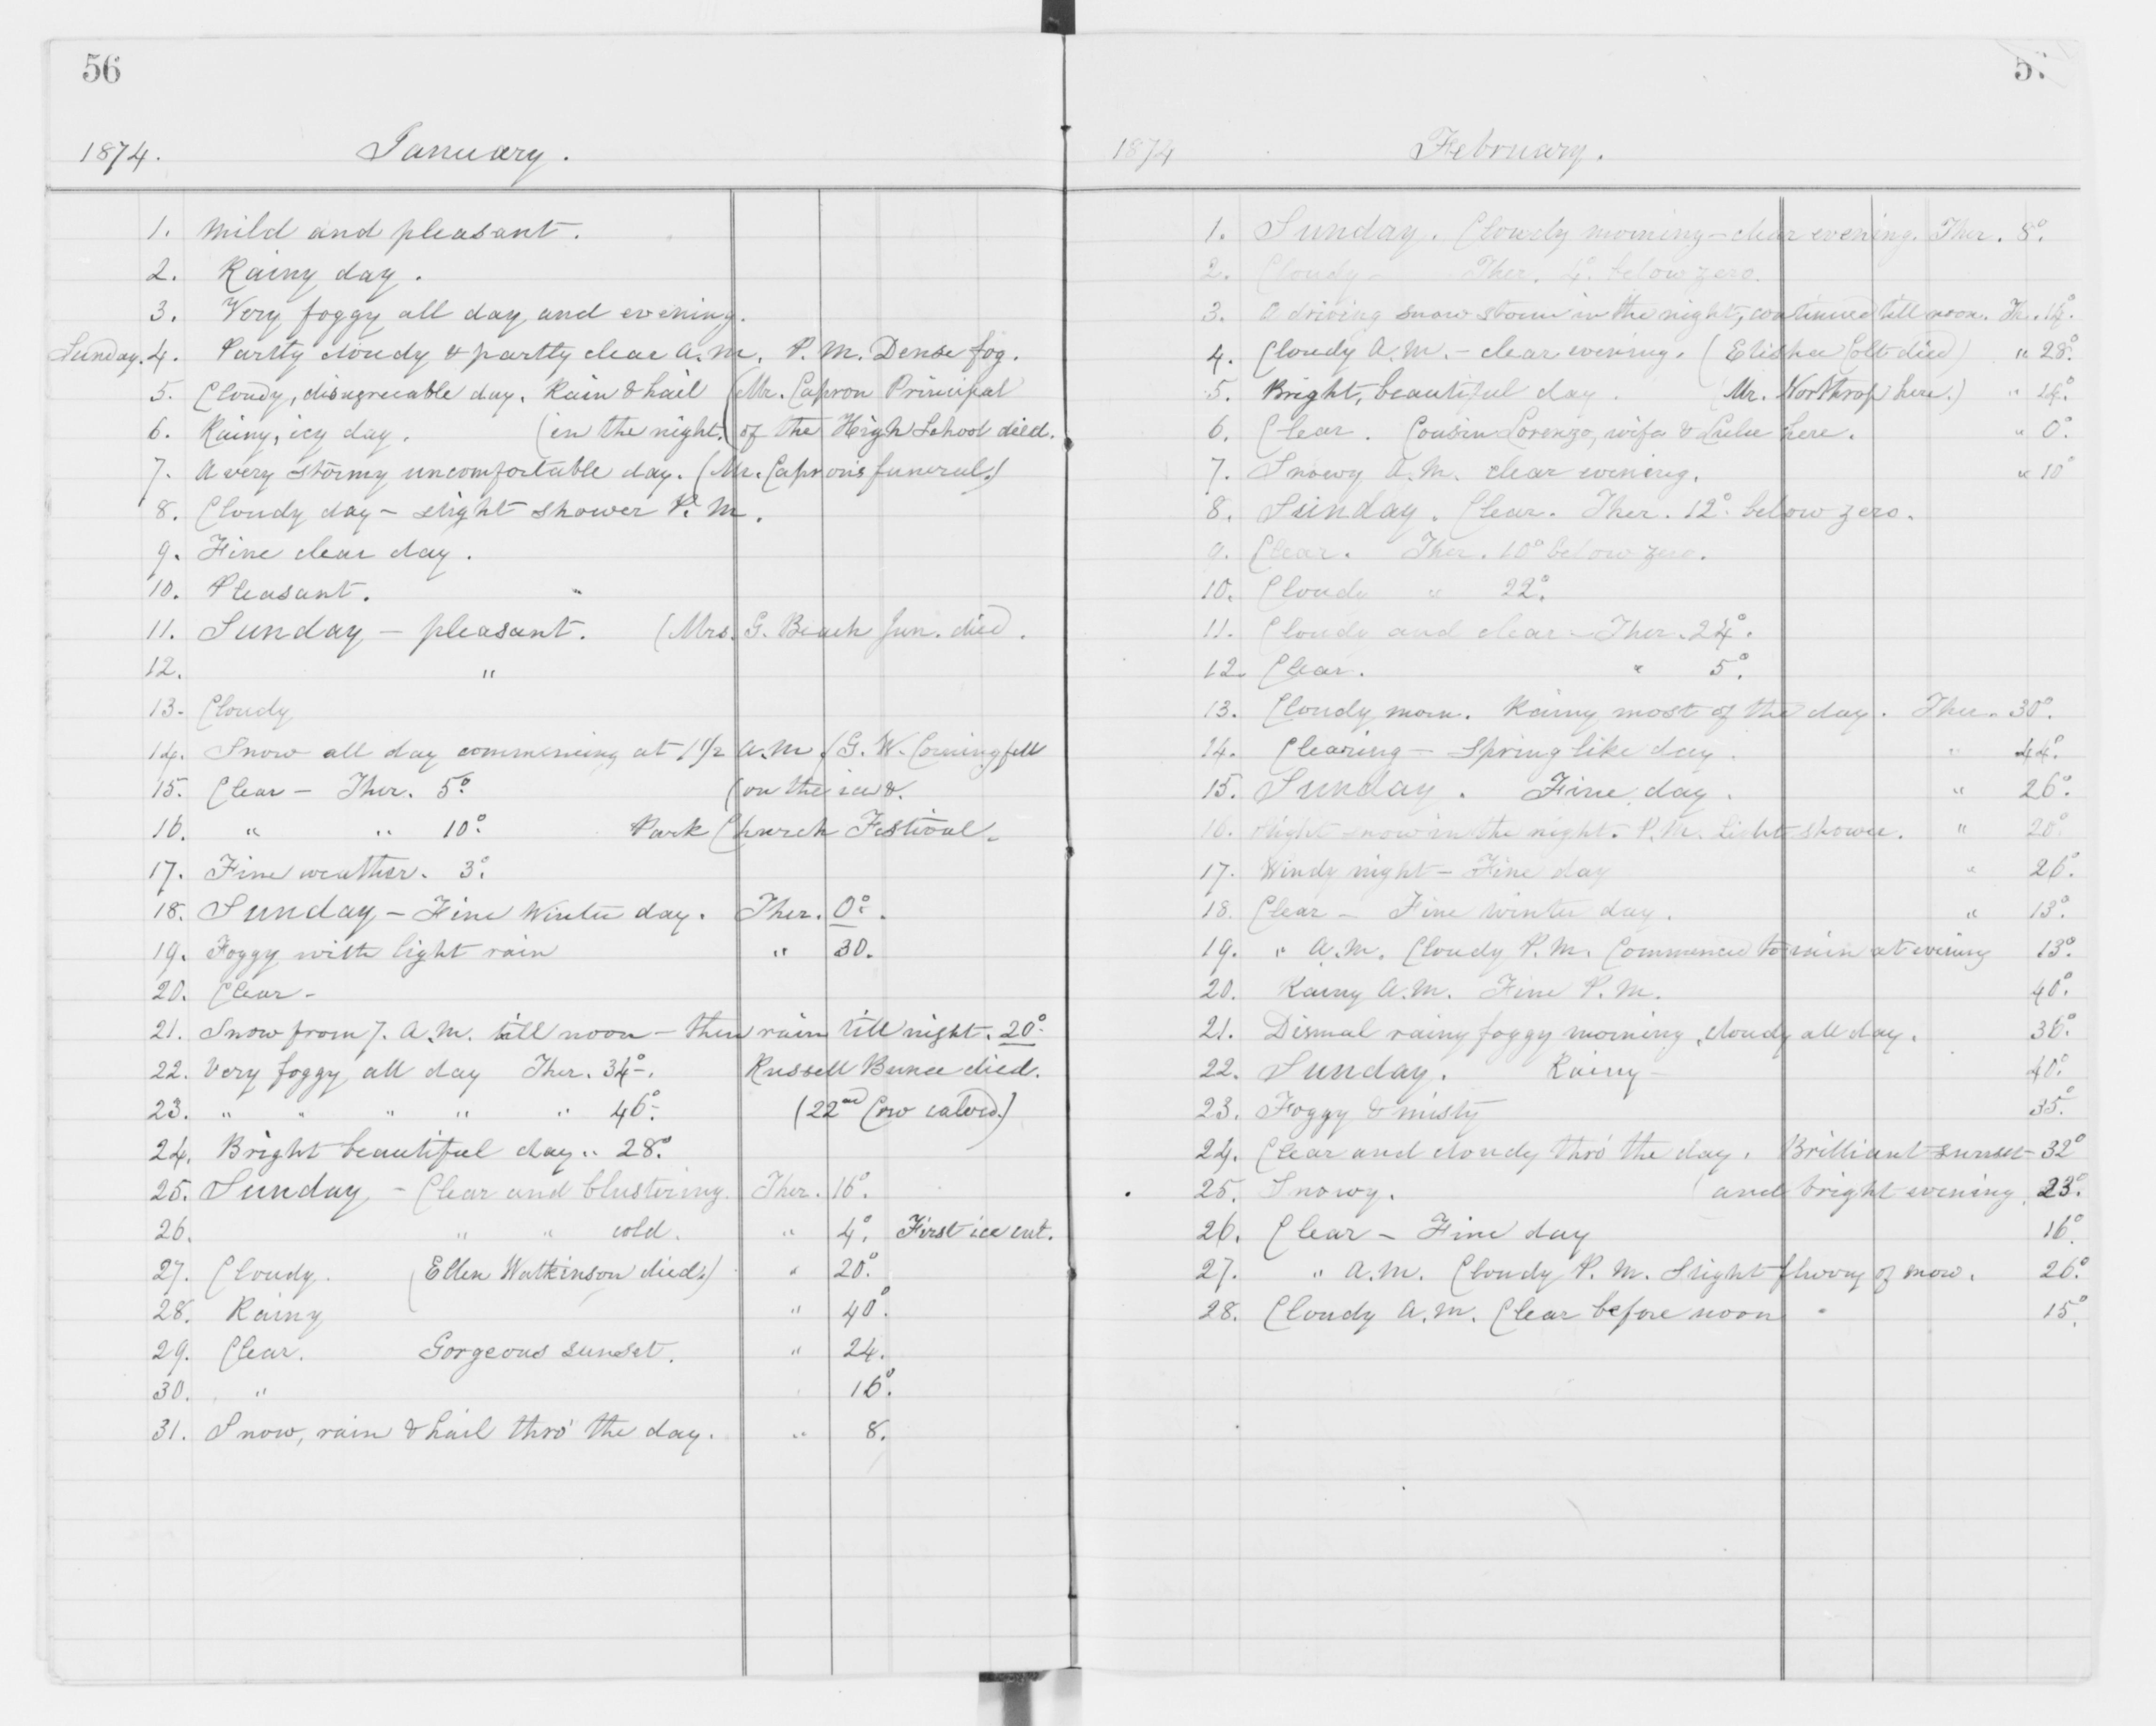 56
1874. January.
1. Mild and pleasant.
2. Rainy day.
3. Very foggy all day and evening.
Sunday. 4. Partly cloudy & partly clear A.M. P.M. Dense fog.
5. Cloudy, disagreeable day. Rain & hail (Mr. Capron Principal
6. Rainy, icy day. (in the night. (of the High School died.
7. A very stormy uncomfortable day. (Mr. Capron's funeral.)
8. Cloudy day – slight shower P.M.
9. Fine clear day.
10. Pleasant. "
11. Sunday – pleasant. (Mrs. G. Beach Jun. died.
12. "
13. Cloudy
14. Snow all day commencing at 1 1/2 A.M. (G. W. Corning fell
15. Clear – Ther. 5°. (on the ice &.
16. " " 10°. Park Church Festival.
17. Fine weather. 3°.
18. Sunday – Fine Winter day. Ther. 0°.
19. Foggy with light rain " 30.
20. Clear –
21. Snow from 7. A.M. till noon – then rain till night. 20°.
22. Very foggy all day Ther. 34°. Russell Bunce died.
23. " " " " " 46°. (22nd Cow calved.)
24. Bright beautiful day " 28°.
25. Sunday – Clear and blustering. Ther. 16°.
26. " " cold. " 4°. First ice cut.
27. Cloudy. (Ellen Watkinson died.) " 20°.
28. Rainy " 40°.
29. Clear. Gorgeous sunset. " 24.
30. " 16°.
31. Snow, rain & hail thro' the day. " 8.
5
1874 February.
1. Sunday. Cloudy morning – clear evening. Ther. 8°.
2. Cloudy – Ther. 4°. below zero.
3. A driving snow storm in the night, continued till noon. Th. 14°.
4. Cloudy A.M. – clear evening. (Elisha Colt died) " 28°.
5. Bright, beautiful day. (Mr. Northrop here.) " 14°.
6. Clear. Cousin Lorenzo, wife & Lulu here. " 0°.
7. Snowy A.M. clear evening. " 10°
8. Sunday. Clear. Ther. 12°. below zero.
9. Clear. Ther. 10° below zero.
10. Cloudy " 22°.
11. Cloudy and clear – Ther. 24°.
12. Clear. " 5°.
13. Cloudy morn. Rainy most of the day. Ther. 30°.
14. Clearing – Spring like day. " 44°.
15. Sunday. Fine day. " 26°.
16. Slight snow in the night. P.M. Light shower. " 20°.
17. Windy night – Fine day " 26°.
18. Clear – Fine winter day. " 13°.
19. " A.M. Cloudy P.M. Commenced to rain at evening 13°.
20. Rainy A.M. Fine P.M. 40°.
21. Dismal rainy foggy morning, cloudy all day. 36°.
22. Sunday. Rainy – 40°.
23. Foggy & misty 35°.
24. Clear and cloudy thro' the day. Brilliant sunset – 32°
25. Snowy. (and bright evening. 23°.
26. Clear – Fine day 16°.
27. " A.M. Cloudy P.M. Slight flurry of snow. 26°.
28. Cloudy A.M. Clear before noon 15°.